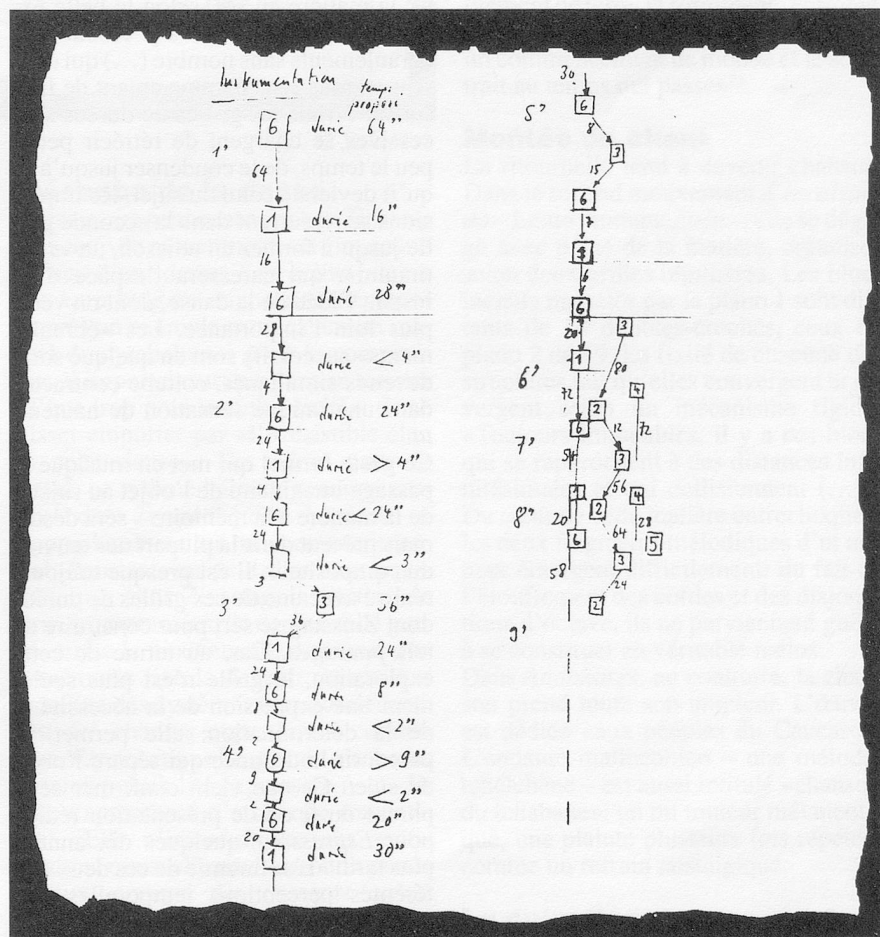 Instrumentation
tempi
propisi
6 durée 64"
1'
64
1 durée 16"
16
6 durée 28"
28
durée < 4"
2'
6 durée 24"
24
1 durée > 4"
4
6 durée < 24"
24
durée < 3"
3
3' 3 36"
36
1 durée 24"
24
6 durée 8"
8
durée < 2"
2
4' 6 durée 9"
9
durée < 2"
2
6 durée 20"
20
1 durée 30"
30
5' 6
8
3
15
6
7
6
6
20 3
1
80
6'
72 4
2
7' 6 12 72
54 3
56
1 4
8' 2
20 28
6 64 5
58 3
24
2
9'